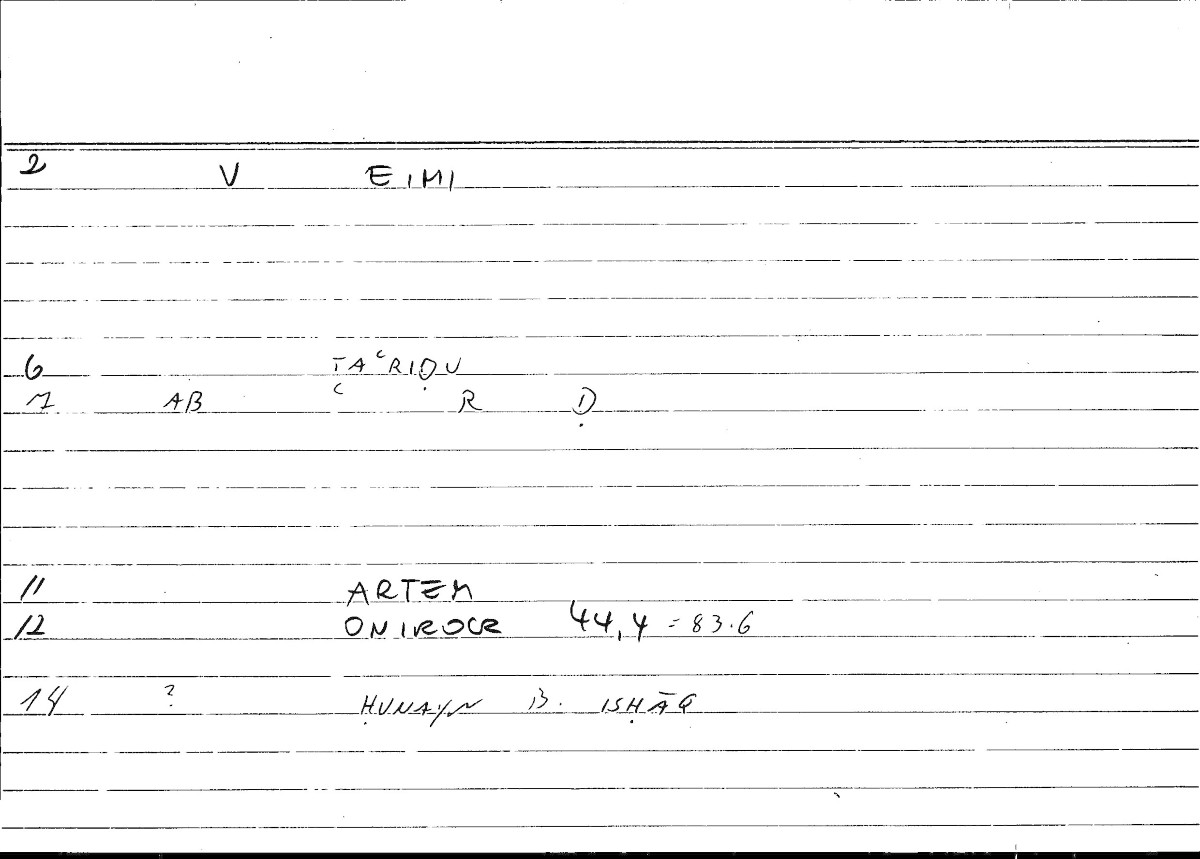 2 V EIMI
6 TAʿRIḌU
7 AB ʿ R Ḍ
11 ARTEM
12 ONIROCR 44,4 = 83.6
14 ? ḤUNAYN B. ISḤĀQ